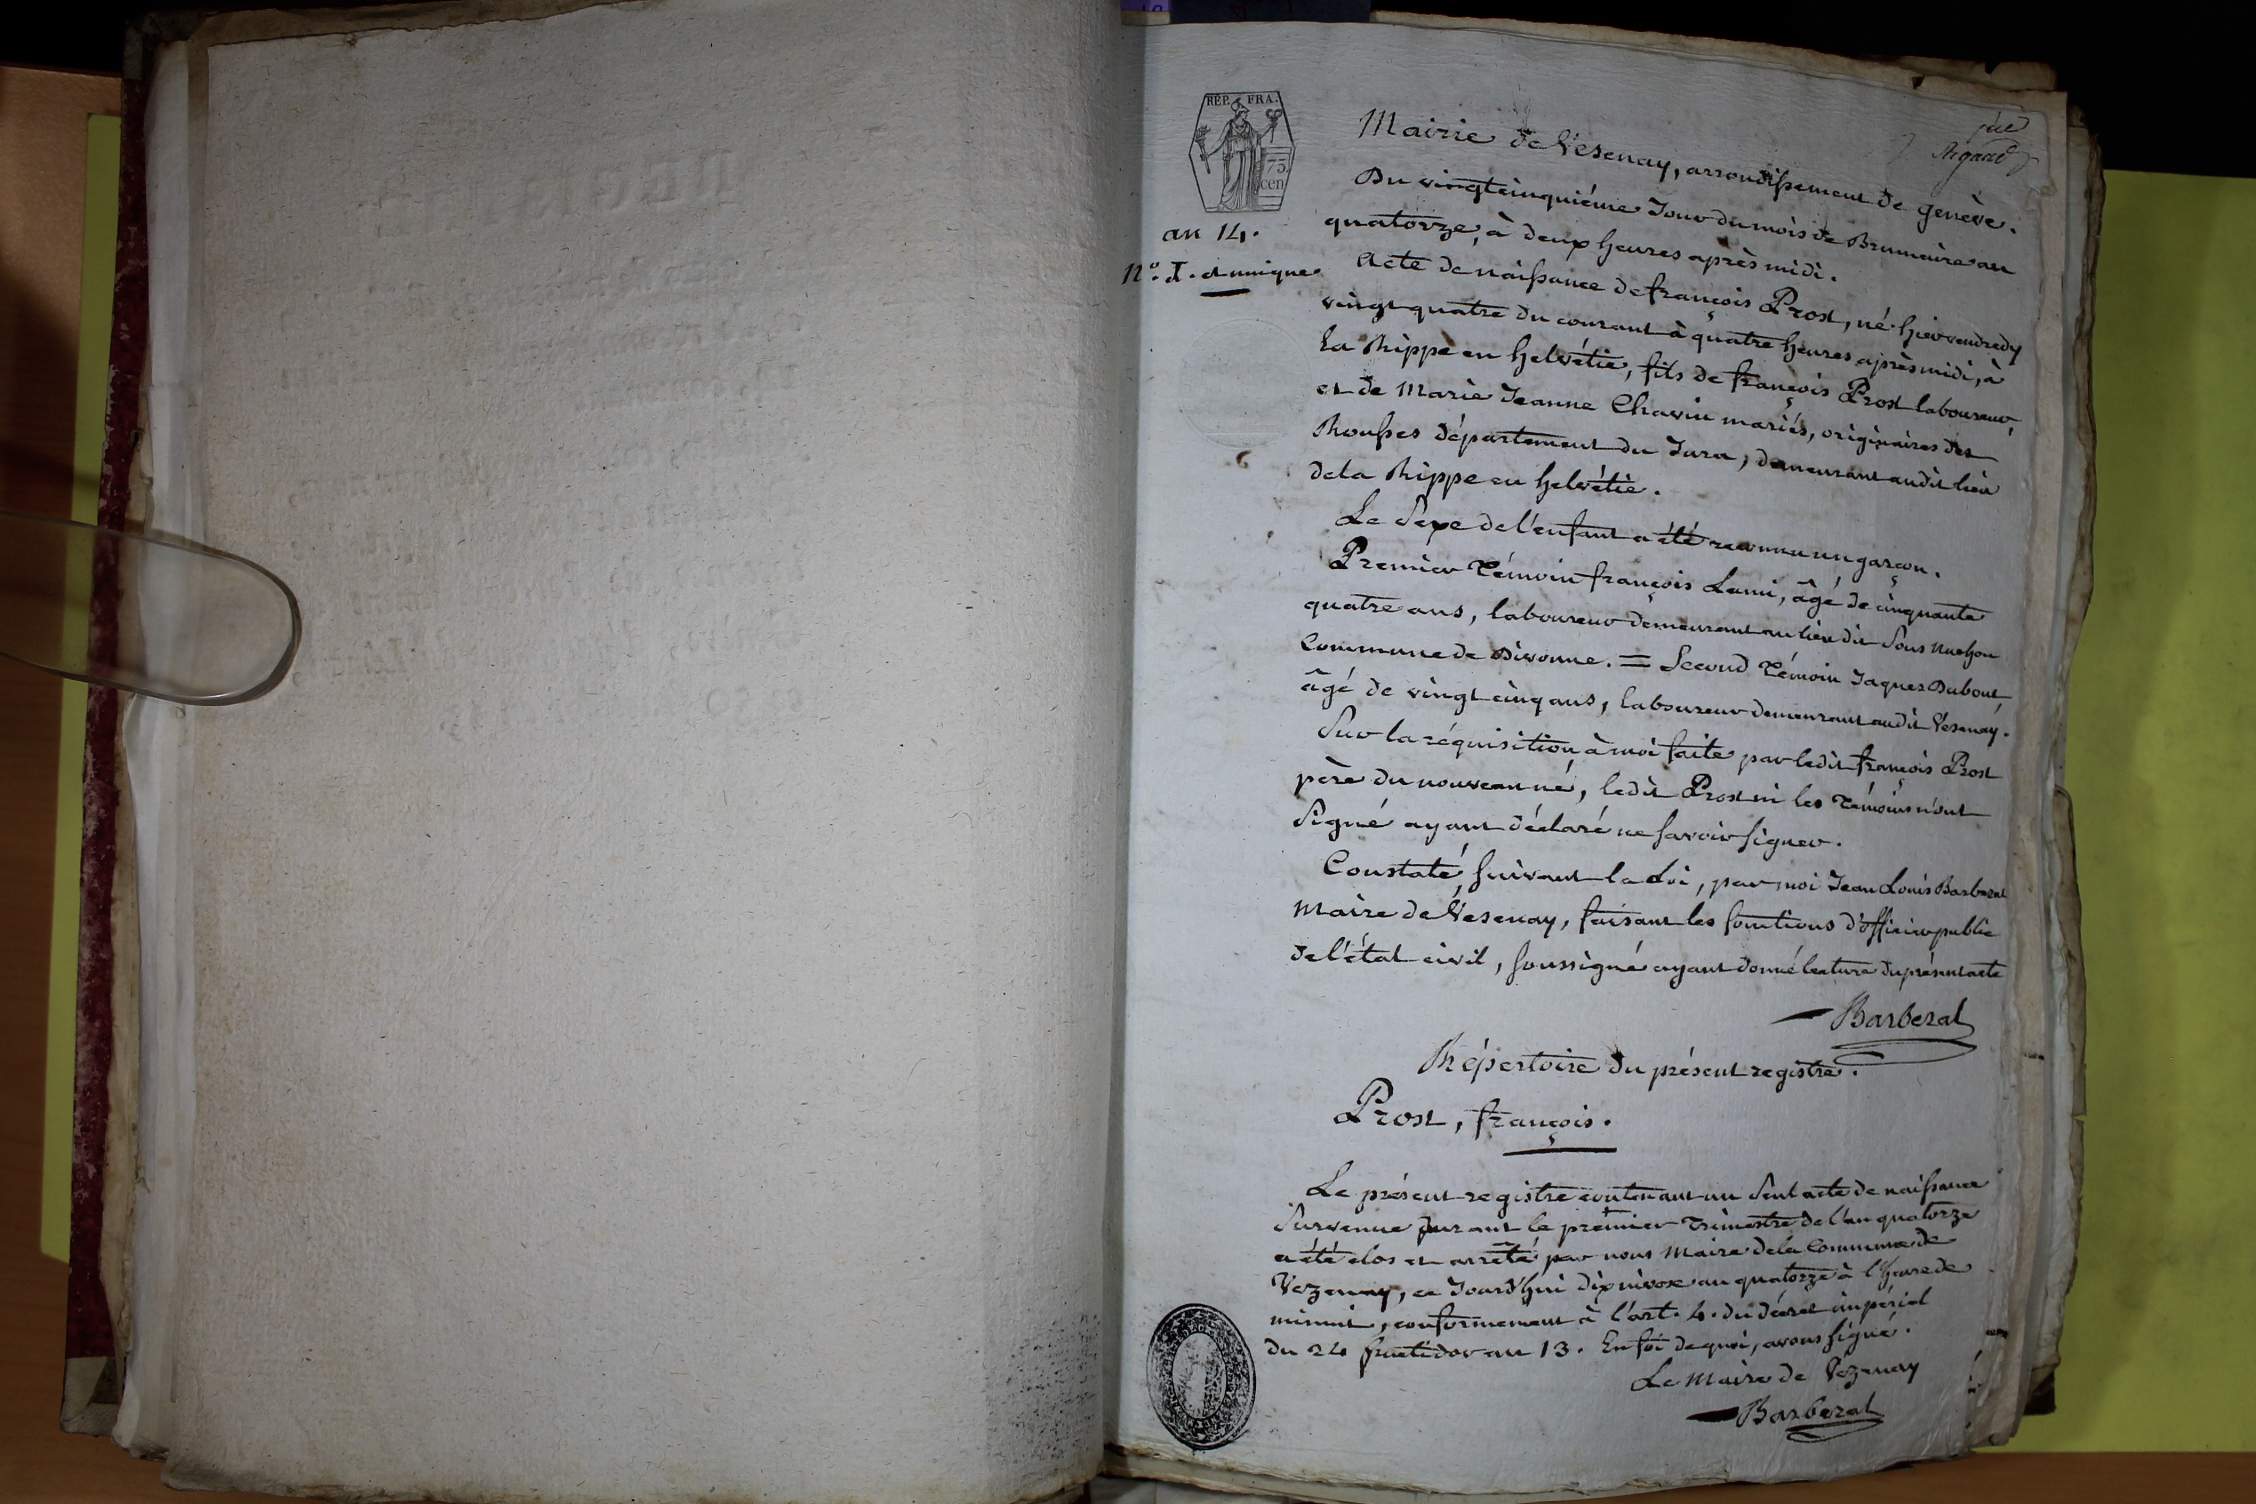 RÉP. FRA.
75.
cen
an 14.
N.º I. et unique.
Mairie de Vésenay, arrondissement de genève.
Du vingtcinquiéme Jour du mois de Brumaire an
quatorze, à deux heures après midi.
Acte de naissance de françois Prost, né hier vendredy
vingt quatre du courant à quatre heures après midi, à
La Rippe en helvétie, fils de françois Prost laboureur,
et de Marie Jeanne Chavin mariés, originaires des
Rousses département du Jura, demeurant audit lieu
de la Rippe en helvétie.
Le Sexe de l'enfant a été reconnu un garçon.
Premier témoin françois Lami, âgé de cinquante
quatre ans, laboureur demeurant au lieu dit Sous
Commune de Divonne. = Second témoin Jaques Dubout
âgé de vingt cinq ans, laboureur demeurant audit Vésenay.
Sur la réquisition à moi faite par ledit françois Prost
père du nouveau né, ledit Prost ni les témoins n'ont
Signé ayant déclaré ne savoir signer.
Constaté, suivant la Loi, par moi Jean Louis Barbezat
Maire de Vésenay, faisant les fonctions d'officier public
de l'état civil, soussigné ayant donné lecture du présent acte
Barbezat
Répertoire du présent registre.
Prost, françois.
Le présent registre contenant un Seul acte de naissance
Survenue durant le premier trimestre de l'an quatorze
a été clos et arrêté par nous Maire de la Commune de
Vezenay, ce Jourd'hui dix nivose an quatorze à l'heure de
minuit, conformément à l'art. 4. du décret impérial
du 24 fructidor an 13. En foi de quoi, avons signé.
Le Maire de Vezenay
Barbezat